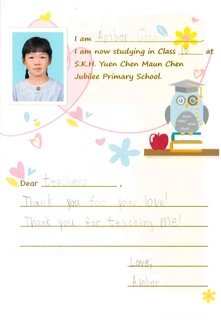 I am Amber
I am now studying in Class at
S.K.H. Yuen Chen Maun Chen
Jubilee Primary School.
Dear teachers,
Thank you for your love!
Thank you for teaching me!
Love,
Amber